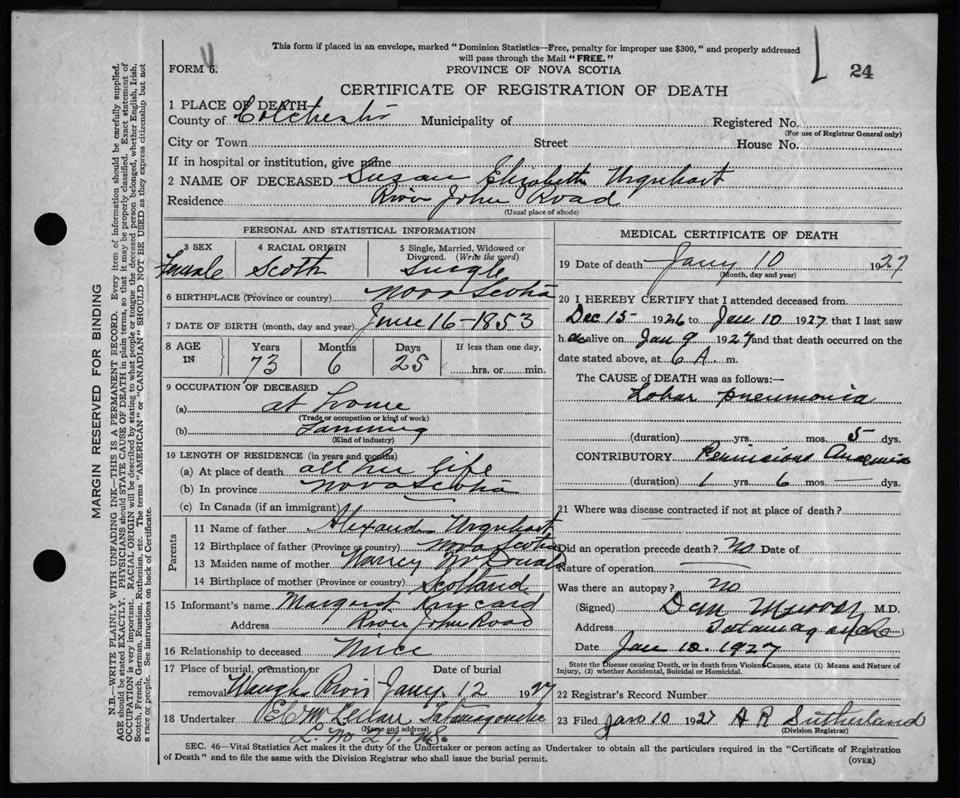 This form if placed in an envelope, marked "Dominion Statistics—Free, penalty for improper use $300," and properly addressed
will pass through the Mail "FREE."
FORM 6.
PROVINCE OF NOVA SCOTIA
24
CERTIFICATE OF REGISTRATION OF DEATH
1 PLACE OF DEATH—
County of Colchester Municipality of Registered No.
(For use of Registrar General only)
City or Town Street House No.
If in hospital or institution, give name
2 NAME OF DECEASED Susan Elizabeth Urquhart
Residence River John Road
(Usual place of abode)
PERSONAL AND STATISTICAL INFORMATION
3 SEX 4 RACIAL ORIGIN 5 Single, Married, Widowed or
Divorced. (Write the word)
Female Scotch Single
6 BIRTHPLACE (Province or country) Nova Scotia
7 DATE OF BIRTH (month, day and year) June 16-1853
8 AGE IN Years Months Days If less than one day,
73 6 25 hrs. or min.
9 OCCUPATION OF DECEASED
(a) at home
(Trade or occupation or kind of work)
(b) Farming
(Kind of industry)
10 LENGTH OF RESIDENCE (in years and months)
(a) At place of death all her life
(b) In province Nova Scotia
(c) In Canada (if an immigrant)
Parents
11 Name of father Urquhart
12 Birthplace of father (Province or country) Nova Scotia
13 Maiden name of mother Nancy McDonald
14 Birthplace of mother (Province or country) Scotland
15 Informant's name Margaret
Address River John Road
16 Relationship to deceased Niece
17 Place of burial, cremation or Date of burial
removal Waughs River Jany. 12 1927
18 Undertaker Tatamagouche
(Name and address)
MEDICAL CERTIFICATE OF DEATH
19 Date of death Jany 10 1927
(Month, day and year)
20 I HEREBY CERTIFY that I attended deceased from
Dec 15- 1926 to Jan 10 1927 that I last saw
h alive on Jan 9 1927 and that death occurred on the
date stated above, at 6 A. m.
The CAUSE of DEATH was as follows:—
Lobar pneumonia
(duration) yrs. mos. 5 dys.
CONTRIBUTORY Pernicious Anaemia
(duration) 1 yrs. 6 mos. — dys.
21 Where was disease contracted if not at place of death?
Did an operation precede death? no Date of
Nature of operation
Was there an autopsy? no
(Signed) Dan Murray M.D.
Address Tatamagouche
Date Jan 10. 1927
State the Disease causing Death, or in death from Violent Causes, state (1) Means and Nature of
Injury, (2) whether Accidental, Suicidal or Homicidal.
22 Registrar's Record Number
23 Filed Jan 10 1927 A R Sutherland
(Division Registrar)
SEC. 46—Vital Statistics Act makes it the duty of the Undertaker or person acting as Undertaker to obtain all the particulars required in the "Certificate of Registration
of Death" and to file the same with the Division Registrar who shall issue the burial permit.
(OVER)
MARGIN RESERVED FOR BINDING
N.B.—WRITE PLAINLY WITH UNFADING INK—THIS IS A PERMANENT RECORD. Every item of information should be carefully supplied.
AGE should be stated EXACTLY. PHYSICIANS should STATE CAUSE OF DEATH in plain terms, so that it may be properly classified. Exact statement of
OCCUPATION is very important. RACIAL ORIGIN will be described by stating to what people or tongue the deceased person belonged, whether English, Irish,
Scotch, French, German, Russian, Ruthenian, etc. The terms "AMERICAN" or "CANADIAN" SHOULD NOT BE USED as they express citizenship but not
a race or people. See instructions on back of Certificate.